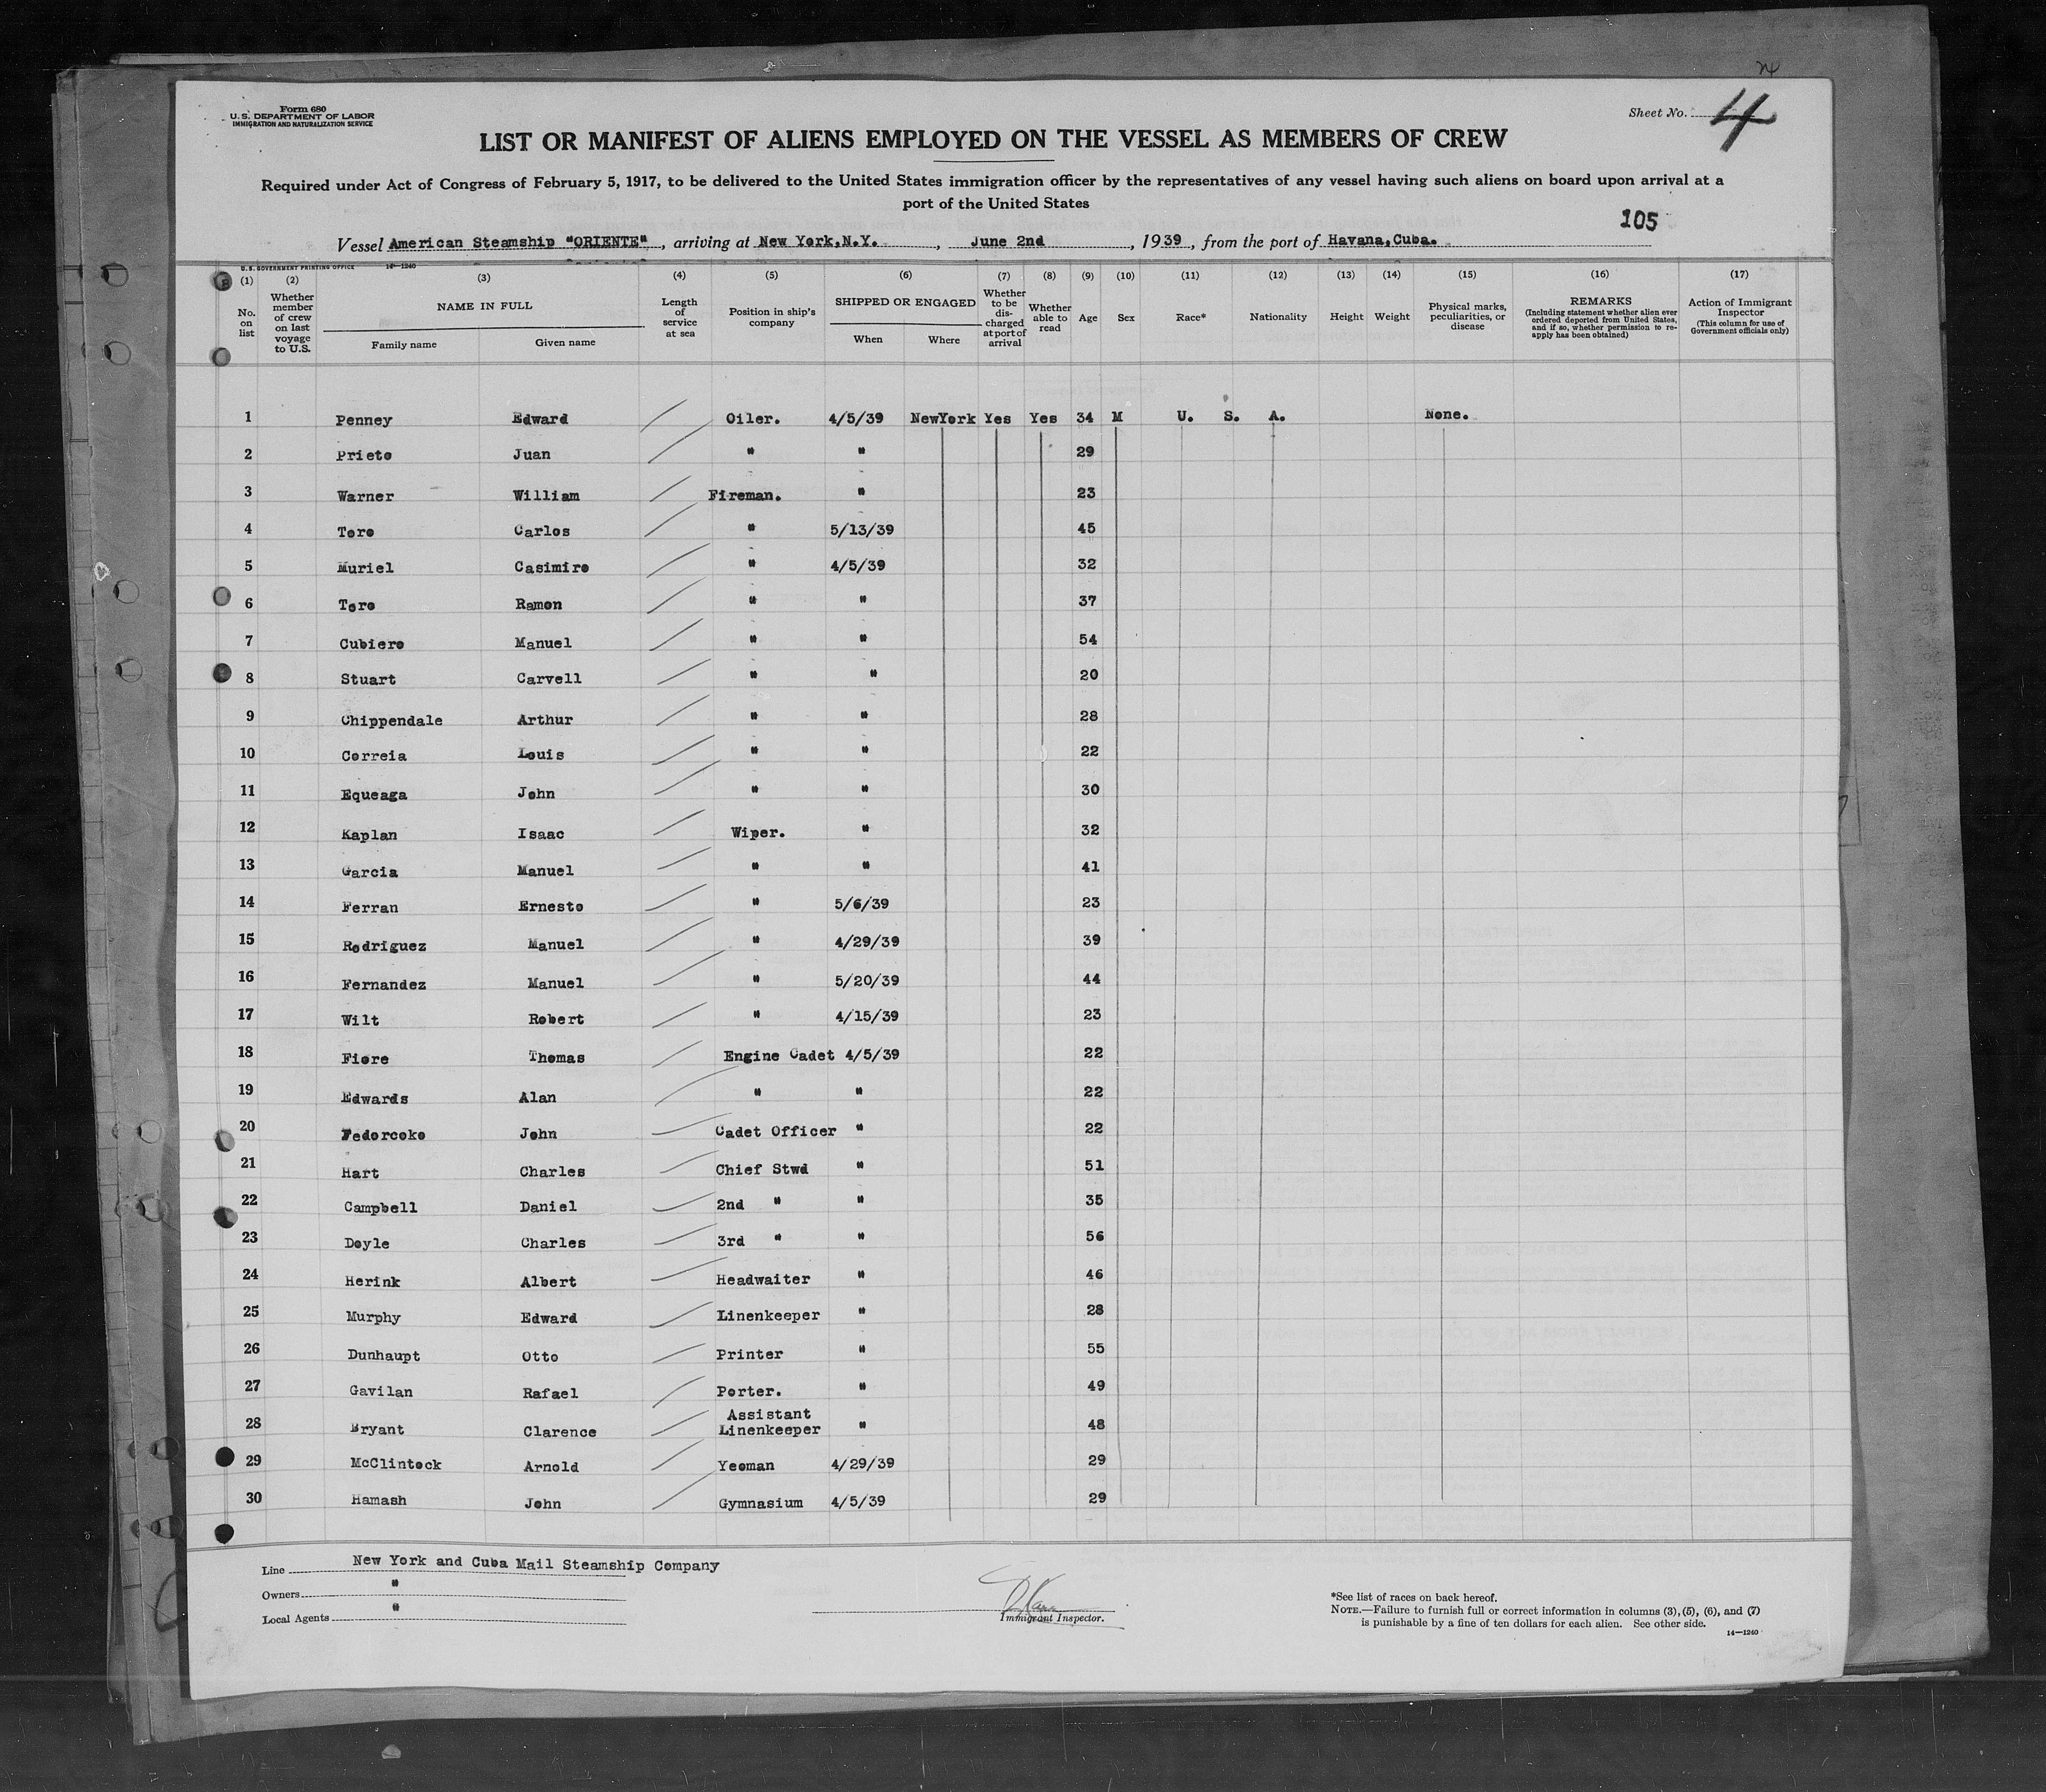 Form 680
U.S. DEPARTMENT OF LABOR
IMMIGRATION AND NATURALIZATION SERVICE
Sheet No. 4
LIST OR MANIFEST OF ALIENS EMPLOYED ON THE VESSEL AS MEMBERS OF CREW
Required under Act of Congress of February 5, 1917, to be delivered to the United States immigration officer by the representatives of any vessel having such aliens on board upon arrival at a
port of the United States
105
Vessel American Steamship "ORIENTE", arriving at New York,N.Y., June 2nd, 1939, from the port of Havana,Cuba.
U.S. GOVERNMENT PRINTING OFFICE 14-1240
(1) No. on list
(2) Whether member of crew on last voyage to U.S.
(3) NAME IN FULL Family name Given name
(4) Length of service at sea
(5) Position in ship's company
(6) SHIPPED OR ENGAGED When Where
(7) Whether to be discharged at port of arrival
(8) Whether able to read
(9) Age
(10) Sex
(11) Race*
(12) Nationality
(13) Height
(14) Weight
(15) Physical marks, peculiarities, or disease
(16) REMARKS (Including statement whether alien ever ordered deported from United States, and if so, whether permission to re-apply has been obtained)
(17) Action of Immigrant Inspector (This column for use of Government officials only)
1 Penney Edward Oiler. 4/5/39 NewYork Yes Yes 34 M U. S. A. None.
2 Prieto Juan " " 29
3 Warner William Fireman. " 23
4 Toro Carlos " 5/13/39 45
5 Muriel Casimiro " 4/5/39 32
6 Toro Ramon " " 37
7 Cubiero Manuel " " 54
8 Stuart Carvell " " 20
9 Chippendale Arthur " " 28
10 Correia Louis " " 22
11 Equeaga John " " 30
12 Kaplan Isaac Wiper. " 32
13 Garcia Manuel " " 41
14 Ferran Ernesto " 5/6/39 23
15 Rodriguez Manuel " 4/29/39 39
16 Fernandez Manuel " 5/20/39 44
17 Wilt Robert " 4/15/39 23
18 Fiore Thomas Engine Cadet 4/5/39 22
19 Edwards Alan " " 22
20 Fedorcoko John Cadet Officer " 22
21 Hart Charles Chief Stwd " 51
22 Campbell Daniel 2nd " " 35
23 Doyle Charles 3rd " " 56
24 Herink Albert Headwaiter " 46
25 Murphy Edward Linenkeeper " 28
26 Dunhaupt Otto Printer " 55
27 Gavilan Rafael Porter. " 49
28 Bryant Clarence Assistant Linenkeeper " 48
29 McClintock Arnold Yeoman 4/29/39 29
30 Hamash John Gymnasium 4/5/39 29
Line New York and Cuba Mail Steamship Company
Owners "
Local Agents "
Immigrant Inspector.
*See list of races on back hereof.
NOTE.—Failure to furnish full or correct information in columns (3), (5), (6), and (7)
is punishable by a fine of ten dollars for each alien. See other side.
14—1240